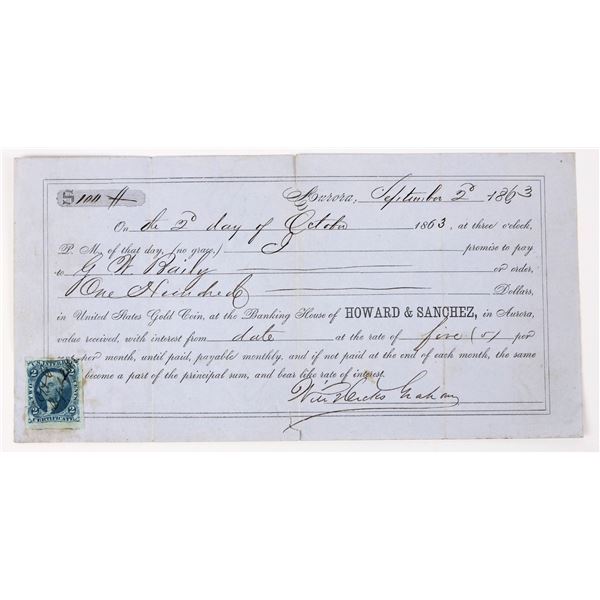 $ 100 #
Aurora, September 2d 1863
On the 2d day of October 1863, at three o'clock,
P. M. of that day, (no grace,) I promise to pay
to G. W. Baily or order,
One Hundred Dollars,
in United States Gold Coin, at the Banking House of HOWARD & SANCHEZ, in Aurora,
value received, with interest from date at the rate of five (5) per
per month, until paid, payable monthly, and if not paid at the end of each month, the same
become a part of the principal sum, and bear like rate of interest.
Will Hicks Graham
2 2
CERTIFICATE